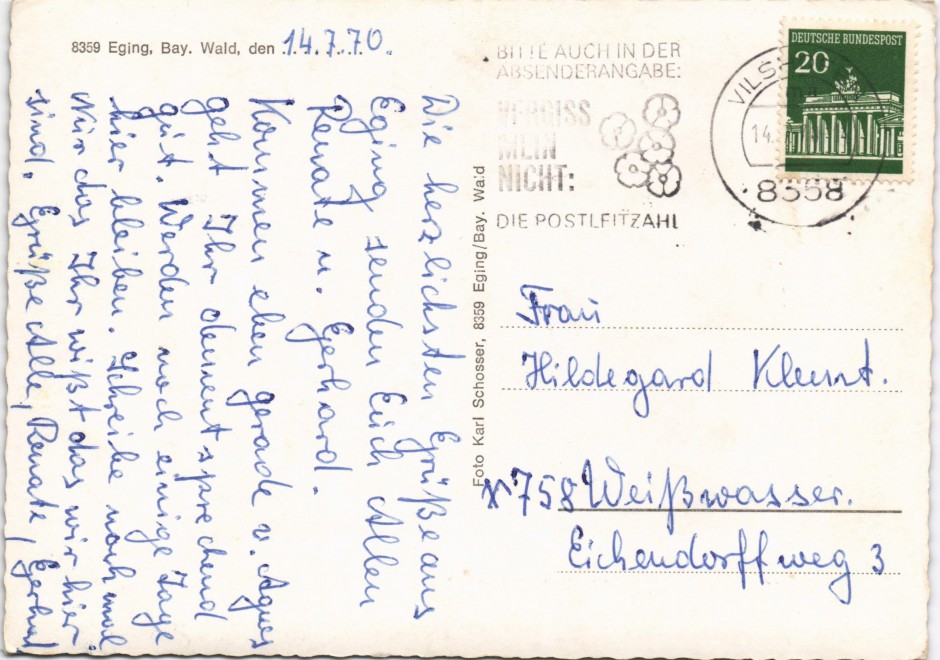 8359 Eging, Bay. Wald, den 14.7.70.
Die herzlichsten Grüße aus
Eging senden Euch Allen
Renate u. Gerhard.
Kommen eben gerade v. Agnes
geht Ihr dementsprechend
gut. Werden noch einige Tage
hier bleiben. Schreibe noch mal
nur das Ihr wißt das wir hier
sind. Grüße Alle, Renate, Gerhard
Foto Karl Schosser, 8359 Eging/Bay. Wald
BITTE AUCH IN DER
ABSENDERANGABE:
VERGISS
MEIN
NICHT:
DIE POSTLEITZAHL
DEUTSCHE BUNDESPOST
20
VILSH
14.
8358
Frau
Hildegard
758 Weißwasser.
Eichendorffweg 3